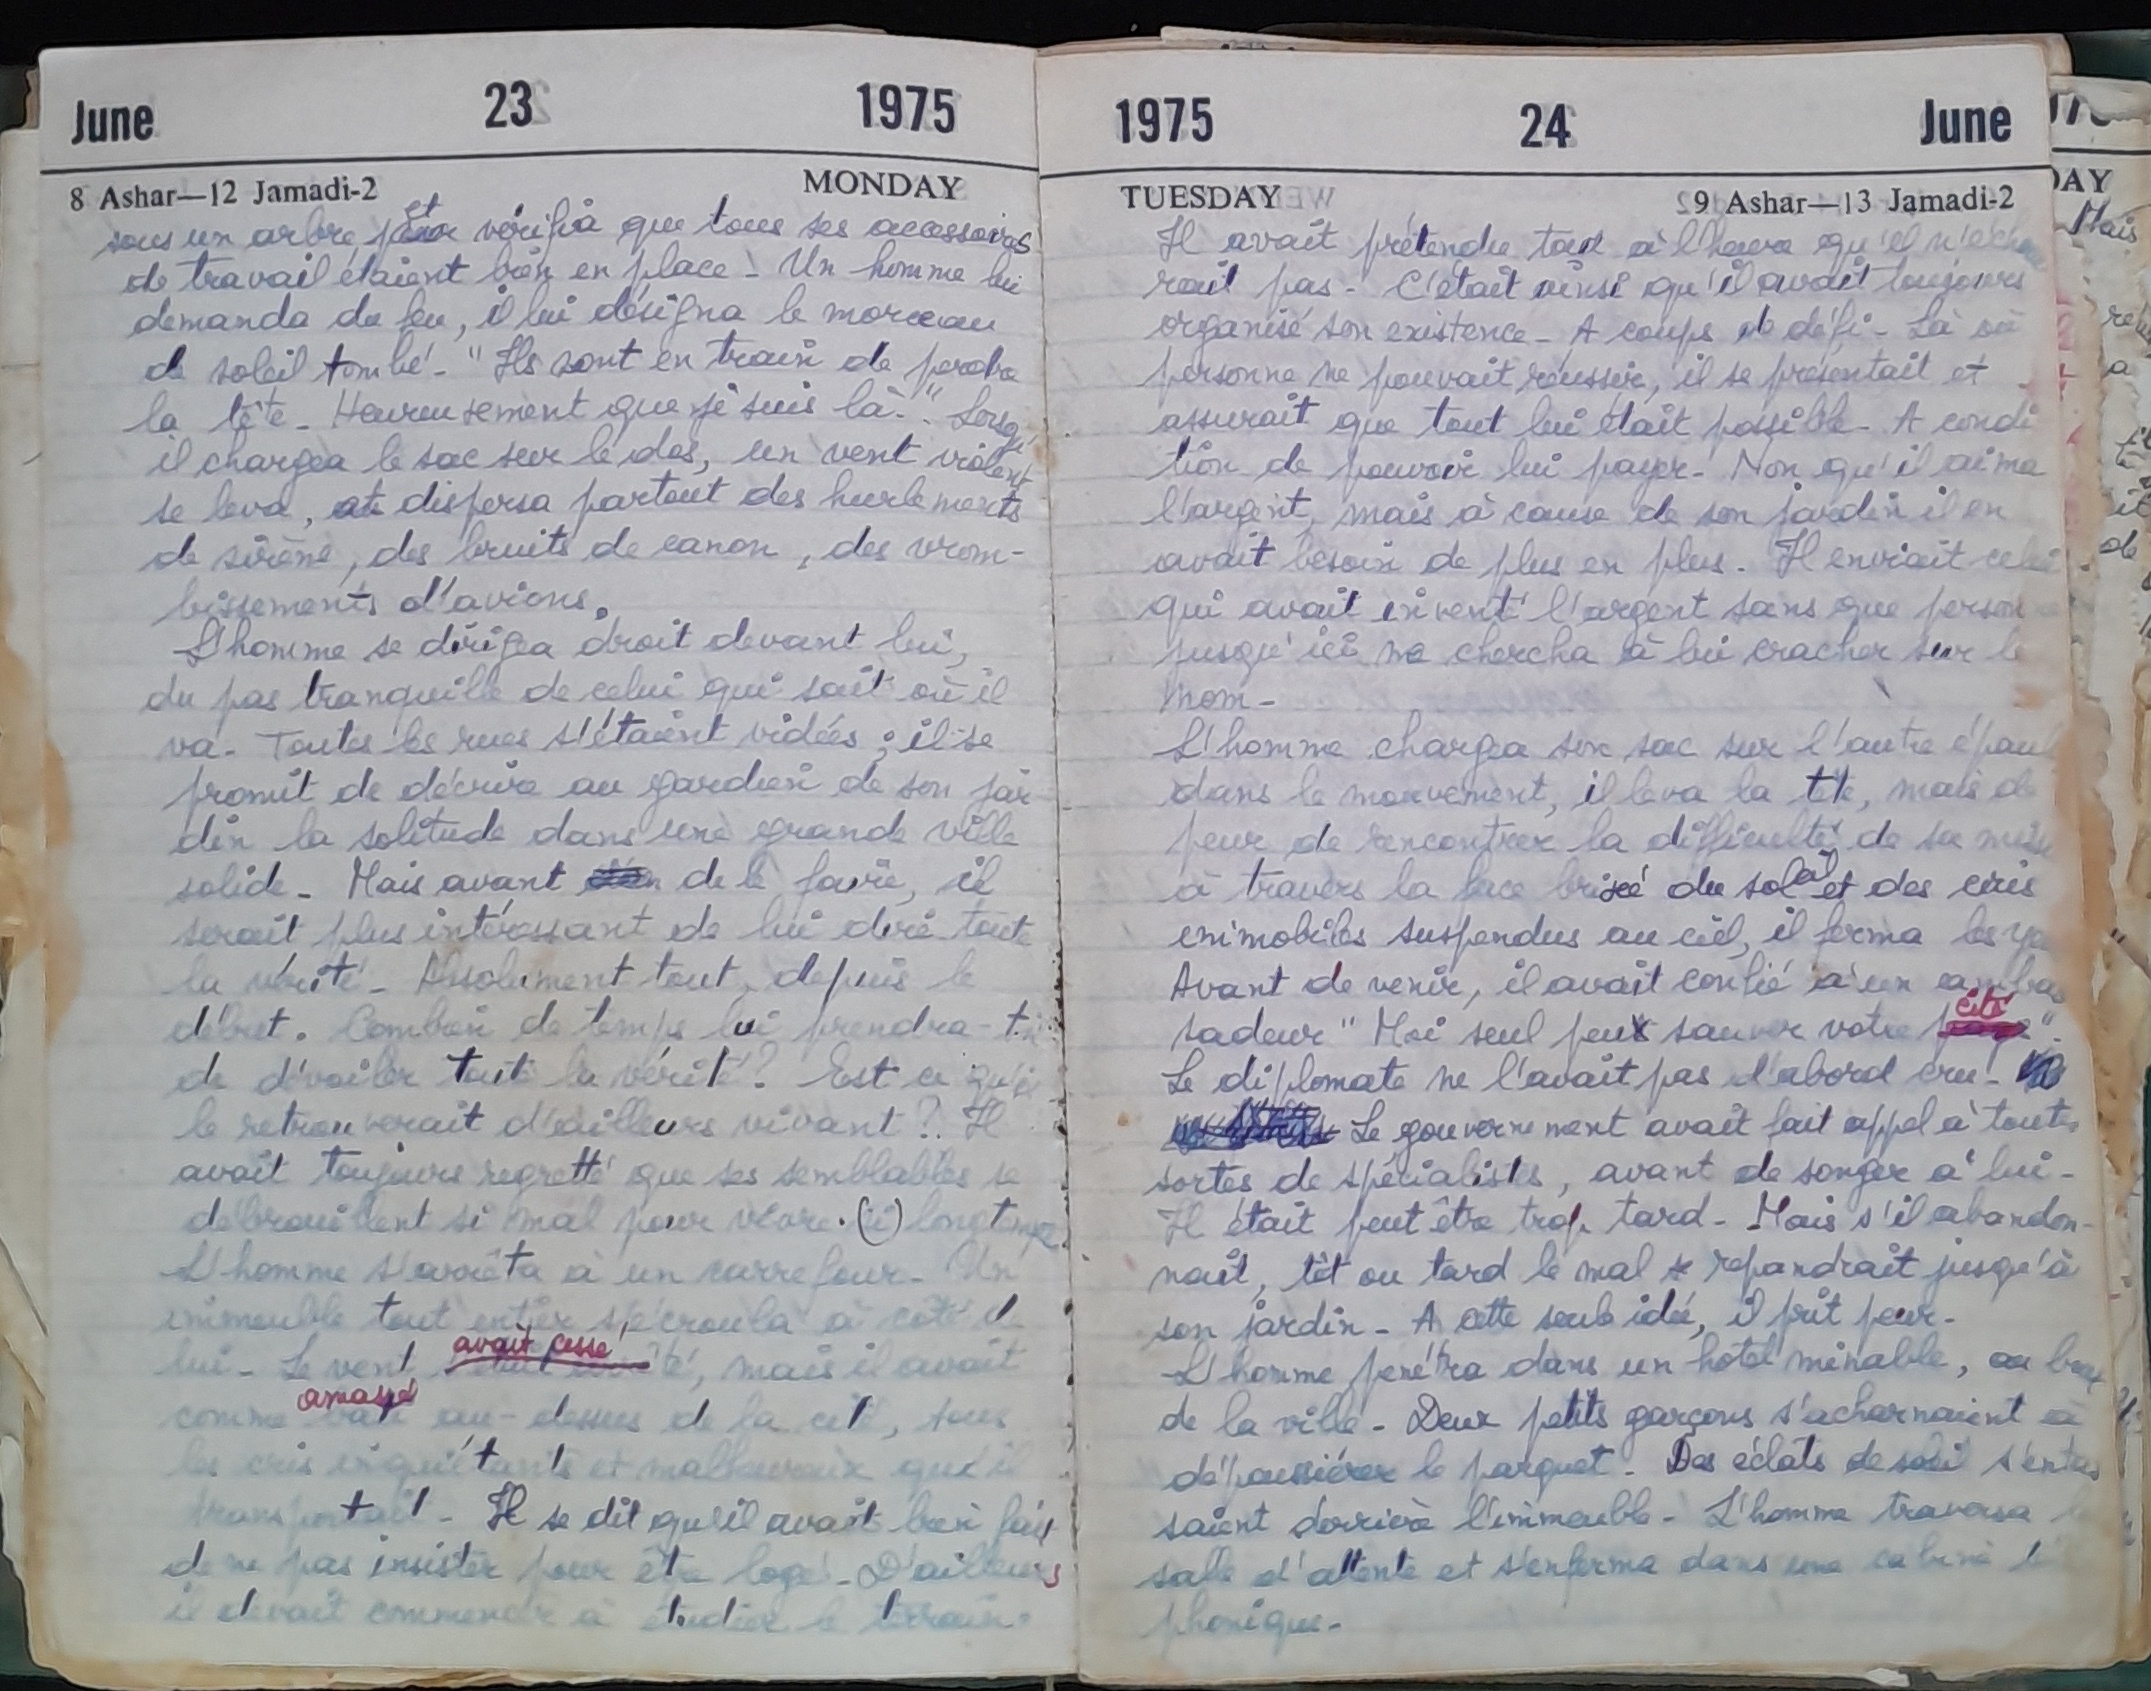 June 23 1975
8 Ashar—12 Jamadi-2 MONDAY
sous un arbre et vérifia que tous ses accessoires
de travail étaient bien en place - Un homme lui
demanda du feu, il lui désigna le morceau
de soleil tombé - "Ils sont en train de perdre
la tête - Heureusement que je suis là." Lorsqu'
il chargea le sac sur le dos, un vent violent
se leva, et dispersa partout des hurlements
de sirène, des bruits de canon, des vrom-
bissements d'avions.
L'homme se dirigea droit devant lui,
du pas tranquille de celui qui sait où il
va - Toutes les rues s'étaient vidées ; il se
promit de décrire au gardien de son jar
din la solitude dans une grande ville
solide - Mais avant de le faire, il
serait plus intéressant de lui dire toute
la vérité - Absolument tout, depuis le
début. Combien de temps lui prendra-t-il
de dévoiler toute la vérité ? Est ce qu'il
le retrouverait d'ailleurs vivant ? Il
avait toujours regretté que ses semblables se
débrouillent si mal pour vivre. (ii) longtemps
L'homme s'arrêta à un carrefour - Un
immeuble tout entier s'écroula à côté de
lui - Le vent avait cessé, mais il avait
comme amassé au-dessus de la cité, tous
les cris inquiétants et malheureux qu'il
transportait - Il se dit qu'il avait bien fait
de ne pas insister pour être logé - D'ailleurs
il devait commencer à étudier le terrain.
1975 24 June
TUESDAY 9 Ashar—13 Jamadi-2
Il avait prétendu tout à l'heure qu'il n'échoue
rait pas - C'était ainsi qu'il avait toujours
organisé son existence - A coups de défi - Là où
personne ne pouvait réussir, il se présentait et
assurait que tout lui était possible - A condi
tion de pouvoir lui payer - Non qu'il aima
l'argent, mais à cause de son jardin il en
avait besoin de plus en plus - Il enviait celui
qui avait inventé l'argent sans que personne
jusqu'ici ne chercha à lui cracher sur le
nom -
L'homme chargea son sac sur l'autre épaule
dans le mouvement, il leva la tête, mais de
peur de rencontrer la difficulté de sa
à travers la face brisée du soleil et des cris
immobiles suspendus au ciel, il ferma les yeux
Avant de venir, il avait confié à un ambas
sadeur "Moi seul peux sauver votre cité".
Le diplomate ne l'avait pas d'abord cru -
Le gouvernement avait fait appel à toutes
sortes de spécialistes, avant de songer à lui -
Il était peut être trop tard - Mais s'il abandon-
nait, tôt ou tard le mal se repandrait jusqu'à
son jardin - A cette seule idée, il prit peur -
L'homme pénétra dans un hôtel minable, au bout
de la ville - Deux petits garçons s'acharnaient à
dépoussiérer le parquet - Des éclats de soleil s'entas
saient derrière l'immeuble - L'homme traversa la
salle d'attente et s'enferma dans une cabine té
phonique -
Mais